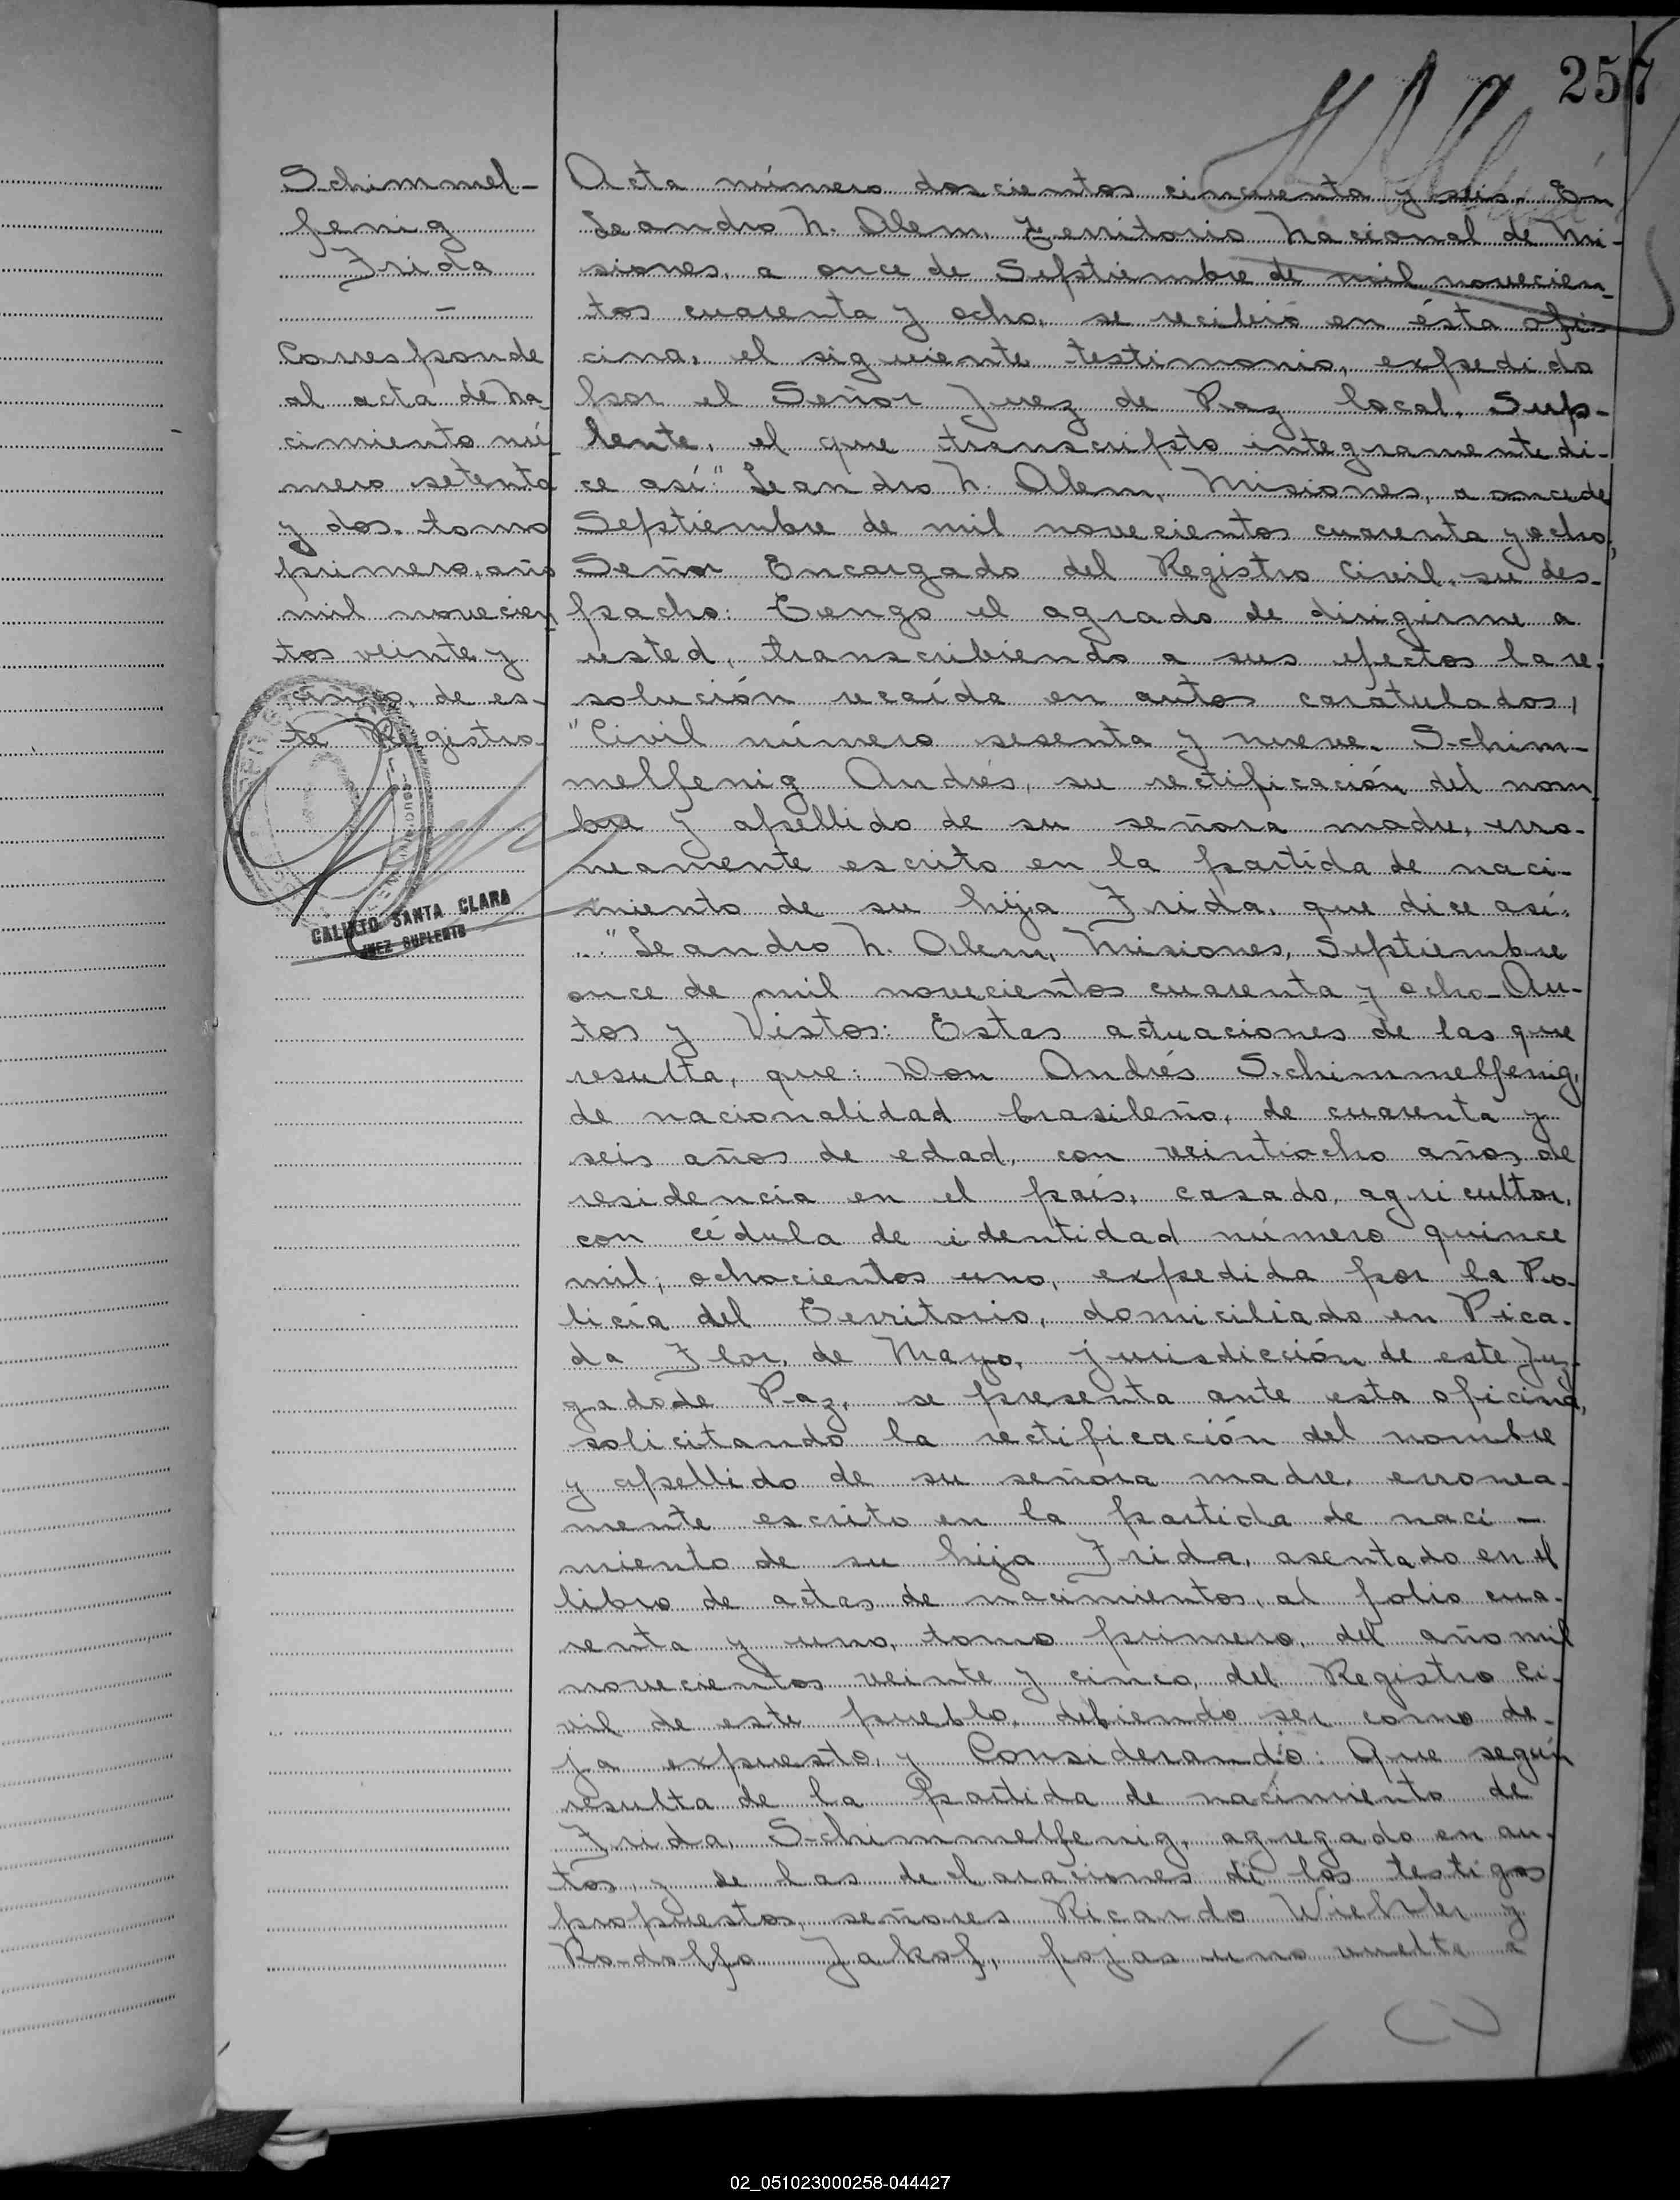 257
Schimmel-
fenig
Frida
-
Corresponde
al acta de na
cimiento nú
mero setenta
y dos. tomo
primero, año
mil novecien
tos veinte y
cinco, de es-
te Registro
CALIXTO SANTA CLARA
JUEZ SUPLENTE
Acta número doscientos cincuenta y seis. En
Leandro N. Alem, Territorio Nacional de Mi-
siones, a once de Septiembre de mil novecien-
tos cuarenta y ocho, se recibió en ésta ofi-
cina, el siguiente testimonio, expedido
por el Señor Juez de Paz local, Sup-
lente, el que transcripto integramente di-
ce así:" Leandro N. Alem, Misiones, a once de
Septiembre de mil novecientos cuarenta y ocho,
Señor Encargado del Registro Civil, su des-
pacho: Tengo el agrado de dirigirme a
usted, transcribiendo a sus efectos la re-
solución recaída en autos caratulados,
"Civil número sesenta y nueve. Schim-
melfenig Andrés, su rectificación del nom
bre y apellido de su señora madre, erro-
neamente escrito en la partida de naci-
miento de su hija Frida, que dice así:
.."Leandro N. Alem, Misiones, Septiembre
once de mil novecientos cuarenta y ocho-Au-
tos y Vistos: Estas actuaciones de las que
resulta, que: Don Andrés Schimmelfenig,
de nacionalidad brasileño, de cuarenta y
seis años de edad, con veintiocho años de
residencia en el país, casado, agricultor,
con cédula de identidad número quince
mil, ochocientos uno, expedida por la Po-
licía del Territorio, domiciliado en Pica-
da Flor de Mayo, jurisdicción de este Juz-
gado de Paz, se presenta ante esta oficina,
solicitando la rectificación del nombre
y apellido de su señora madre, erronea-
mente escrito en la partida de naci-
miento de su hija Frida, asentado en el
libro de actas de nacimientos, al folio cua-
renta y uno, tomo primero, del año mil
novecientos veinte y cinco, del Registro Ci-
vil de este pueblo, debiendo ser como de-
ja expuesto, y Considerando: Que según
resulta de la Partida de nacimiento de
Frida, Schimmelfenig, agregado en au-
tos, y de las declaraciones de los testigos
propuestos, señores Ricardo Wiehler y
Rodolfo Jakof, fojas uno vuelta a
02_051023000258-044427